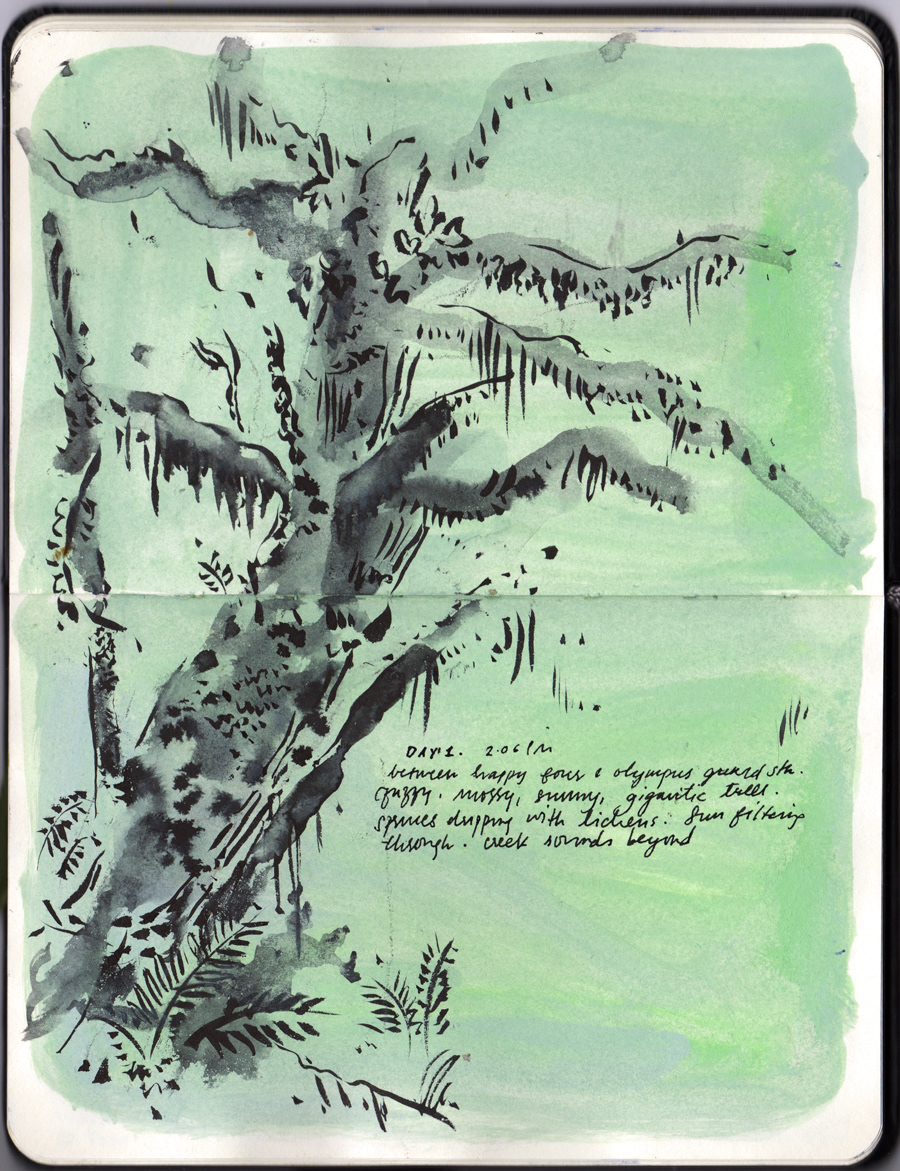 DAY 1. 2:06 PM
between happy four & olympus guard stn.
fuzzy. mossy, sunny, gigantic trees.
spruces dripping with lichens. Sun filtering
through. creek sounds beyond